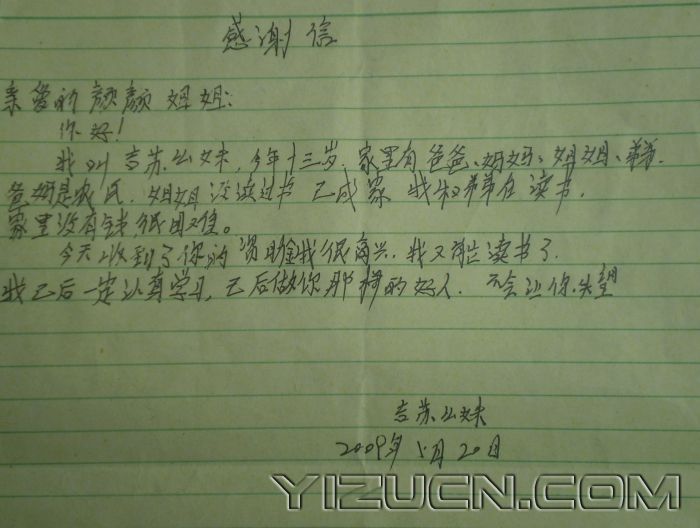 感谢信
亲爱的颜颜姐姐:
你好!
我叫吉苏么妹,今年十三岁.家里有爸爸、妈妈、姐姐、弟弟.
爸妈是农民.姐姐没读过书已成家 我和弟弟在读书.
家里没有钱很困难。
今天收到了你的资助金我很高兴.我又能读书了.
我已后一定认真学习,已后做你那样的好人.不会让你失望
吉苏么妹
2009年5月20日
YIZUCN.COM